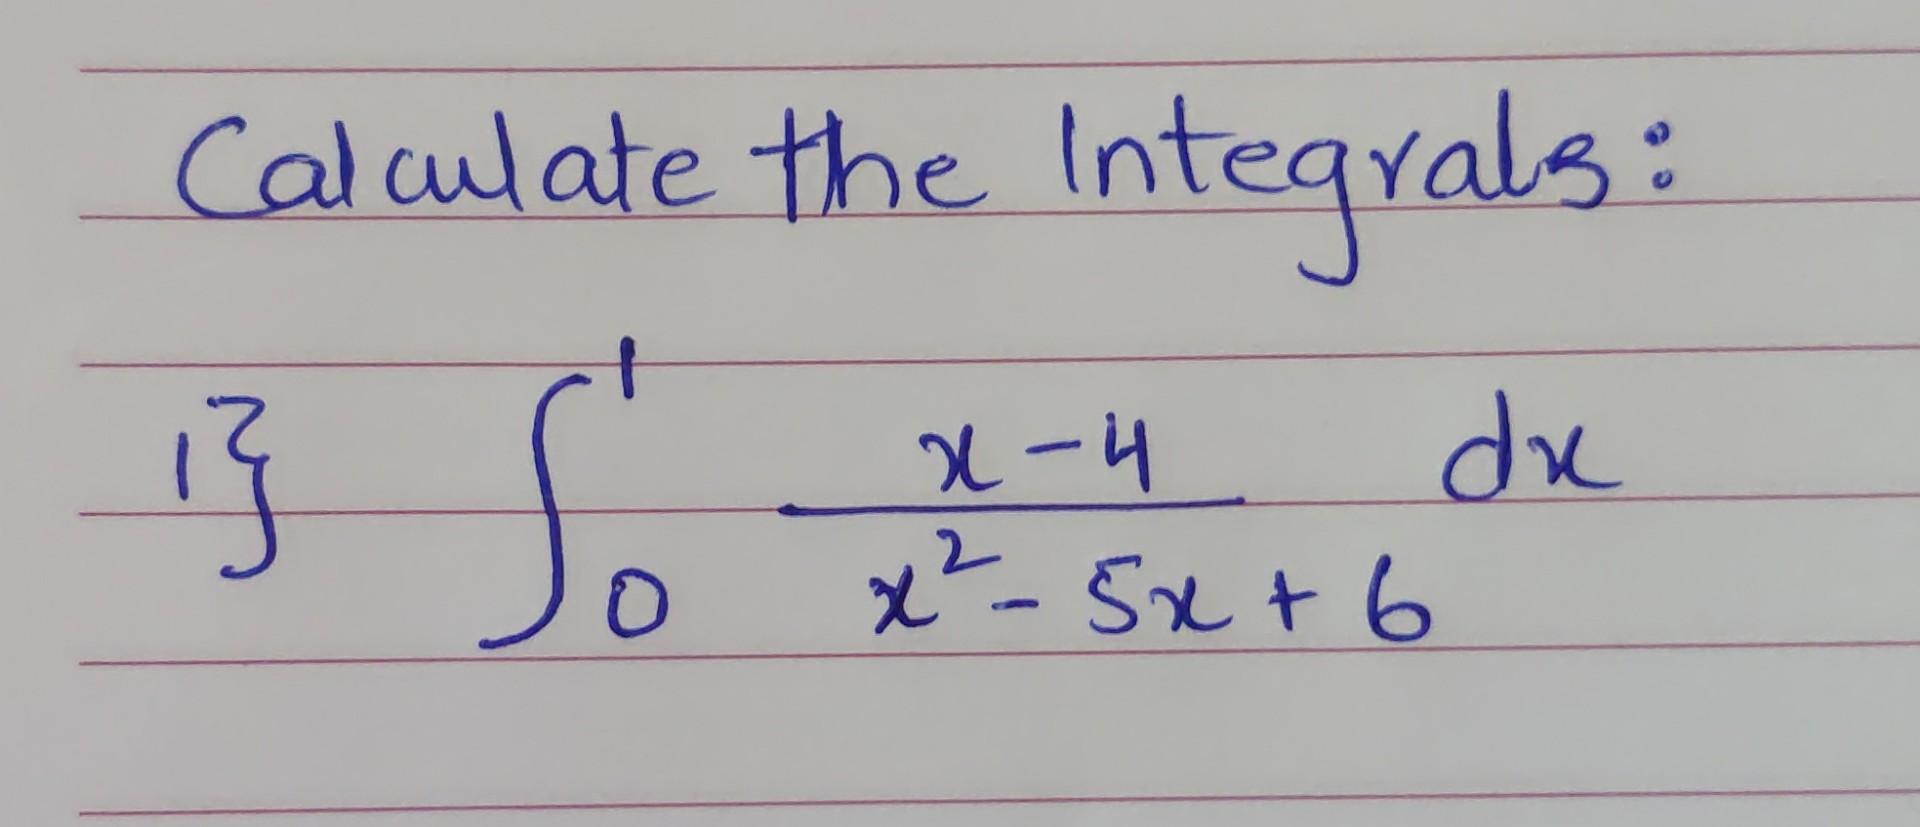 Calculate the Integrals:
1} ∫₀¹ (x-4)/(x²-5x+6) dx